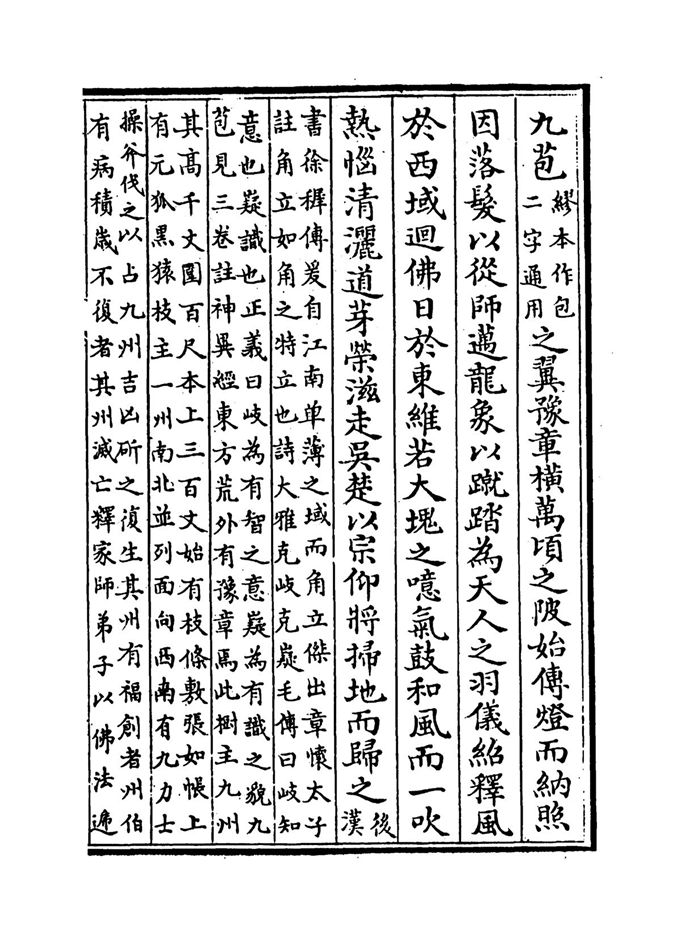 九苞繆本作包二字通用之翼豫章橫萬頃之陂始傳燈而納照
因落髮以從師邁龍象以蹴踏為天人之羽儀紹釋風
於西域迴佛日於東維若大塊之噫氣鼓和風而一吹
熱惱清灑道芽榮滋走吳楚以宗仰將掃地而歸之後漢
書徐穉傳爰自江南卑薄之域而角立傑出章懷太子
註角立如角之特立也詩大雅克岐克嶷毛傳曰岐知
意也嶷識也正義曰岐為有智之意嶷為有識之貌九
苞見三卷註神異經東方荒外有豫章焉此樹主九州
其髙千丈圍百尺本上三百丈始有枝條敷張如帳上
有元狐黑猿枝主一州南北並列面向西南有九力士
操斧伐之以占九州吉凶斫之復生其州有福創者州伯
有病積嵗不復者其州滅亡釋家師弟子以佛法遞